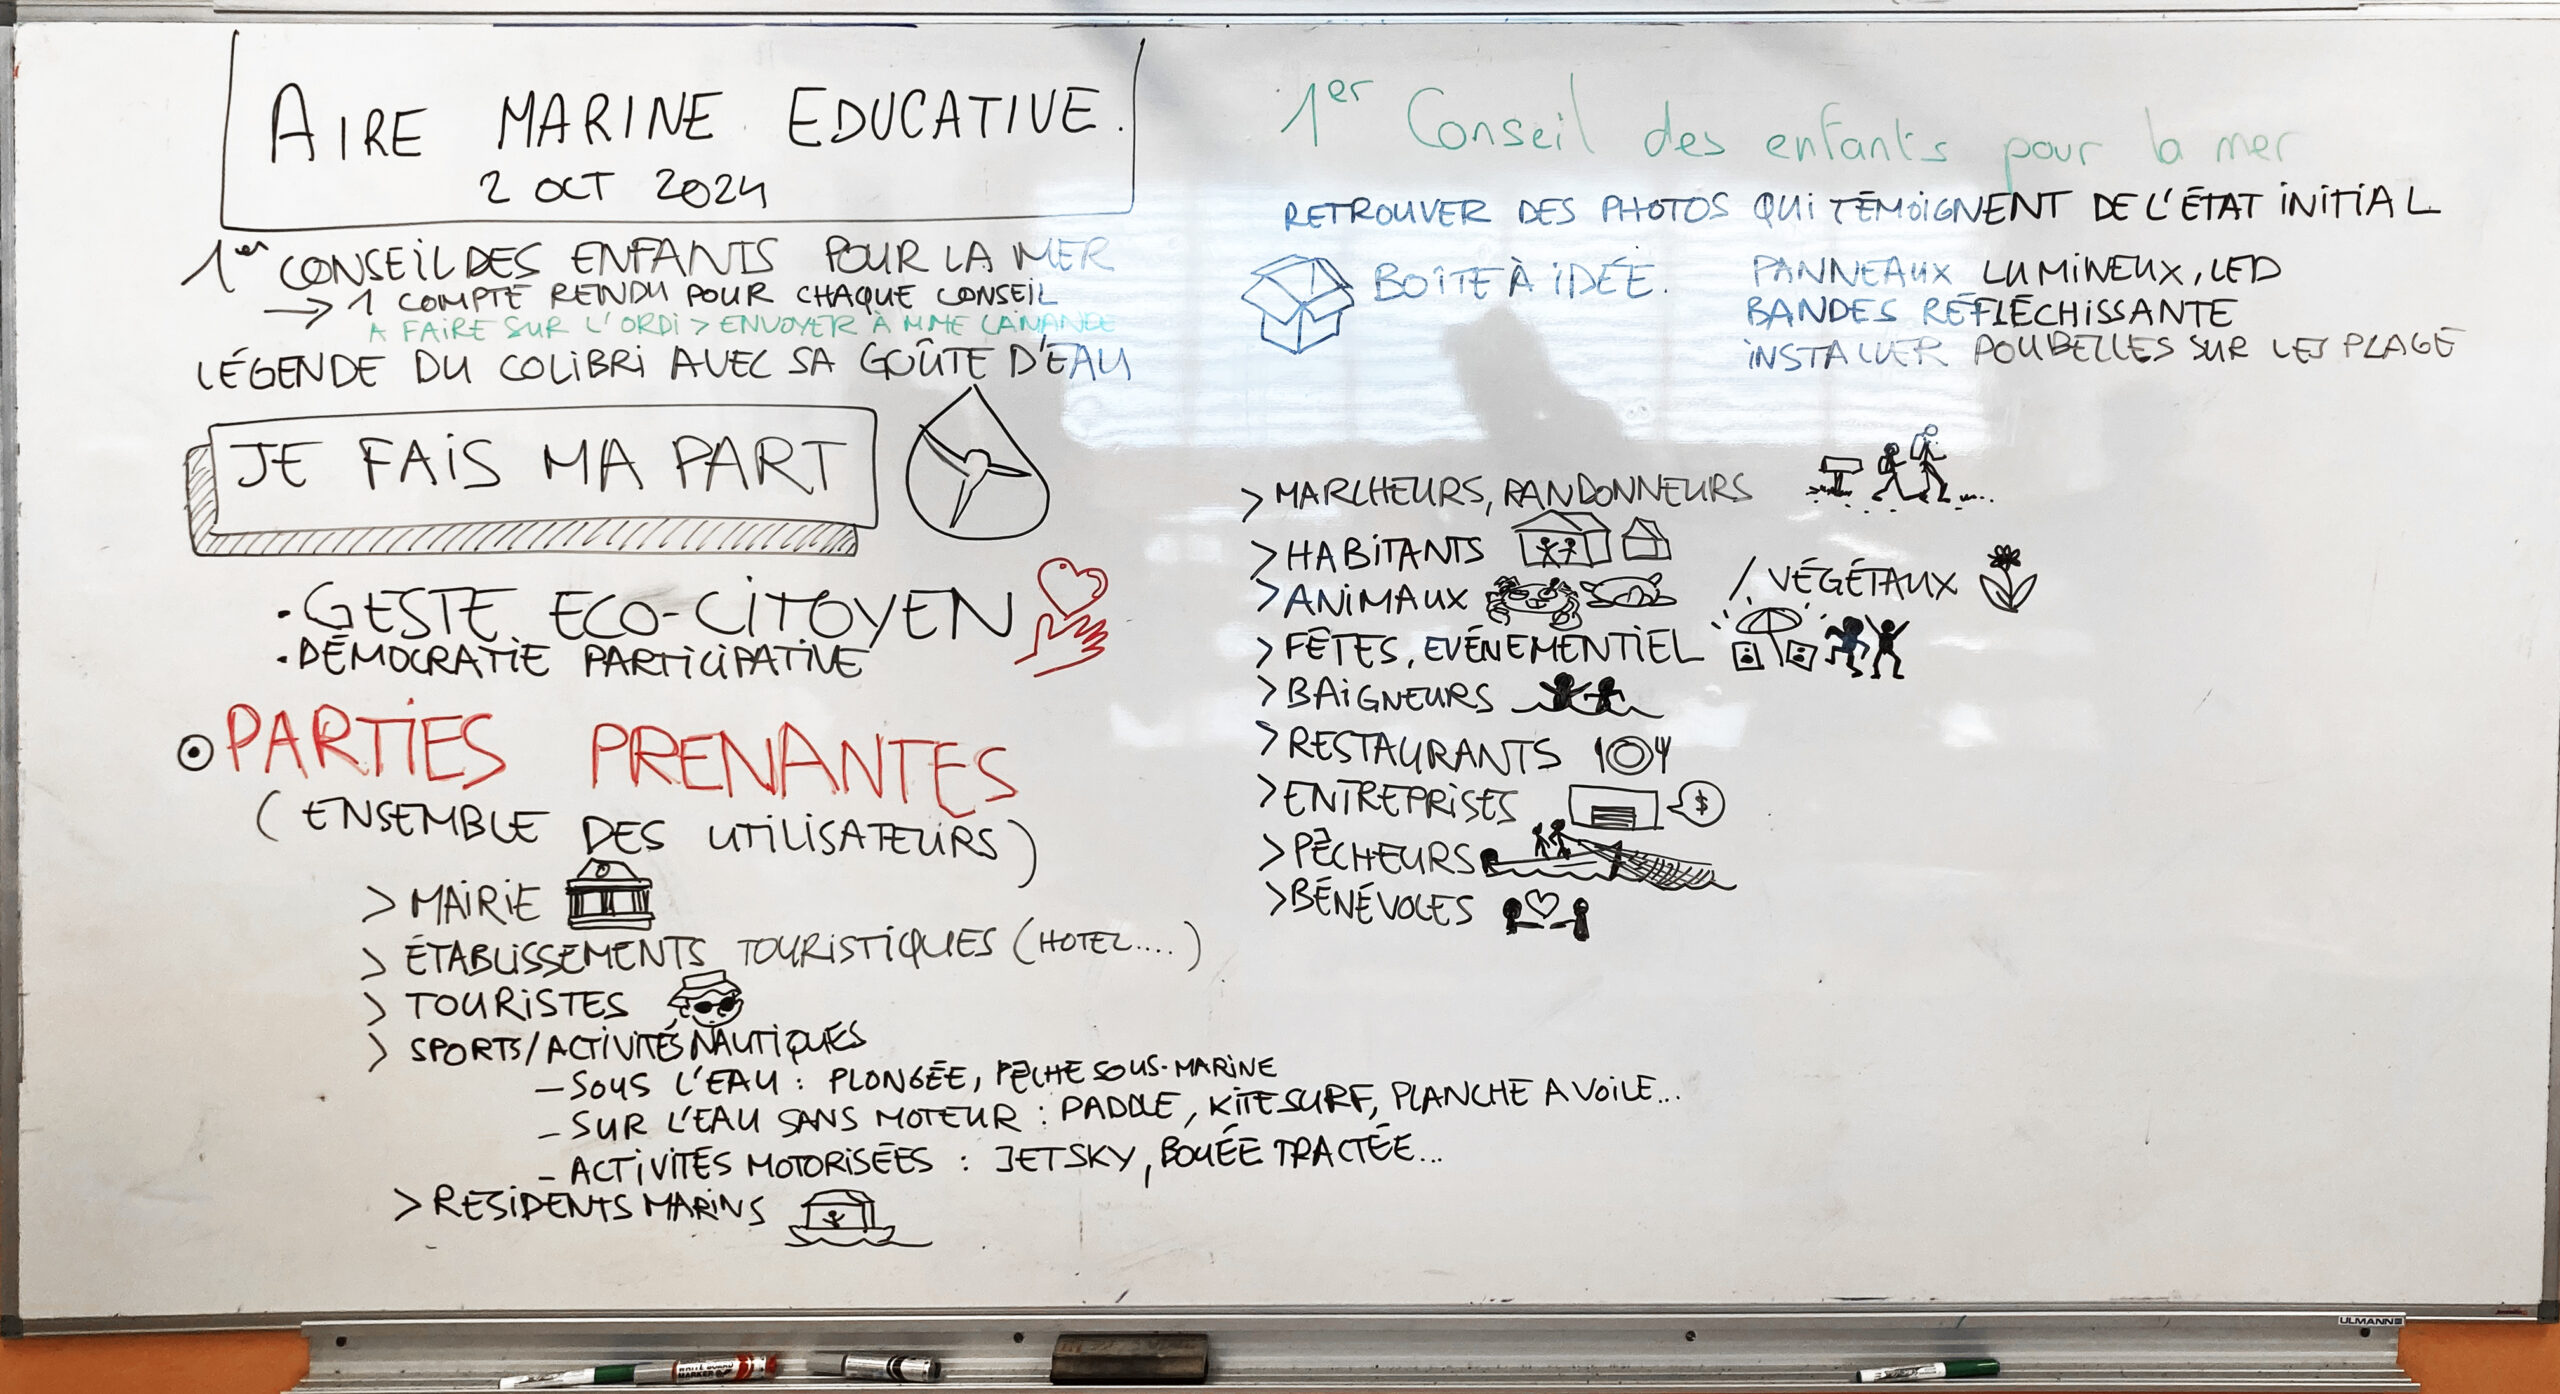 AIRE MARINE EDUCATIVE.
2 OCT 2024
1er CONSEIL DES ENFANTS POUR LA MER
→ 1 COMPTE RENDU POUR CHAQUE CONSEIL
A FAIRE SUR L'ORDI > ENVOYER À MME LAMANDE
LÉGENDE DU COLIBRI AVEC SA GOÛTE D'EAU
JE FAIS MA PART
• GESTE ECO-CITOYEN
• DÉMOCRATIE PARTICIPATIVE
PARTIES PRENANTES
(ENSEMBLE DES UTILISATEURS)
> MAIRIE
> ÉTABLISSEMENTS TOURISTIQUES (HOTEL....)
> TOURISTES
> SPORTS/ACTIVITÉS NAUTIQUES
– SOUS L'EAU : PLONGÉE, PÊCHE SOUS-MARINE
– SUR L'EAU SANS MOTEUR : PADDLE, KITESURF, PLANCHE A VOILE...
– ACTIVITÉS MOTORISÉES : JETSKY, BOUÉE TRACTÉE...
> RESIDENTS MARINS
1er Conseil des enfants pour la mer
RETROUVER DES PHOTOS QUI TÉMOIGNENT DE L'ÉTAT INITIAL
BOITE À IDÉE.
PANNEAUX LUMINEUX, LED
BANDES RÉFLÉCHISSANTE
INSTALLER POUBELLES SUR LES PLAGE
> MARCHEURS, RANDONNEURS
> HABITANTS
> ANIMAUX / VÉGÉTAUX
> FÊTES, EVÉNEMENTIEL
> BAIGNEURS
> RESTAURANTS
> ENTREPRISES $
> PÊCHEURS
> BÉNÉVOLES
ULMANN